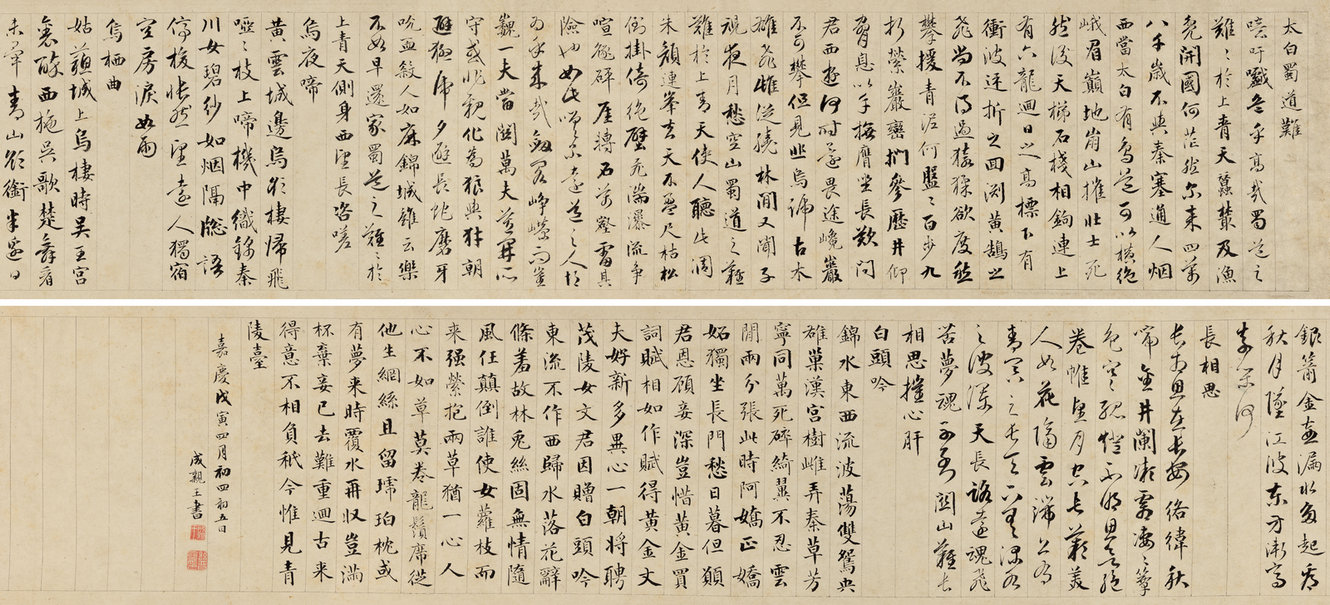 太白蜀道難
噫吁嚱危乎高哉蜀道之
難〻於上青天蠶叢及漁
鳧開國何茫然尔來四萬
八千歲不與秦塞通人烟
西當太白有鳥道可以橫絕
峨眉巔地崩山摧壯士死
然後天梯石棧相鉤連上
有六龍迴日之高標下有
衝波逆折之回淵黃鶴之
飛尚不得過猿猱欲度愁
攀援青泥何盤〻百步九
折縈巖巒捫參歷井仰
脅息以手撫膺坐長歎問
君西遊何時還畏途巉巖
不可攀但見悲鳥號古木
雄飛雌從繞林間又聞子
規夜月愁空山蜀道之難
難於上青天使人聽此凋
朱顏連峯去天不盈尺枯松
倒掛倚絕壁飛湍瀑流爭
喧豗砯崖轉石萬壑雷其
險也如此嗟尔遠道之人胡
為乎來哉劍閣崢嶸而崔
巍一夫當關萬夫莫開所
守或匪親化為狼與豺朝
避猛虎夕避長蛇磨牙
吮血殺人如麻錦城雖云樂
不如早還家蜀道之難〻於
上青天側身西望長咨嗟
烏夜啼
黃雲城邊烏欲棲歸飛
啞〻枝上啼機中織錦秦
川女碧紗如烟隔牕語
停梭悵然望遠人獨宿
空房淚如雨
烏栖曲
姑蘇城上烏棲時吳王宮
裏醉西施吳歌楚舞看
未畢青山欲銜半邊日
銀箭金壺漏水多起看
秋月墜江波東方漸高
奈樂何
長相思
長相思在長安絡緯秋
啼金井闌微霜淒〻簟
色寒孤燈不明思欲絕
卷帷望月空長歎美
人如花隔雲端上有
青冥之長天下有淥水
之波瀾天長路遠魂飛
苦夢魂不到關山難長
相思摧心肝
白頭吟
錦水東西流波蕩雙鴛鴦
雄巢漢宮樹雌弄秦草芳
寧同萬死碎綺翼不忍雲
間兩分張此時阿嬌正嬌
妬獨坐長門愁日暮但願
君恩顧妾深豈惜黃金買
詞賦相如作賦得黃金丈
夫好新多異心一朝將聘
茂陵女文君因贈白頭吟
東流不作西歸水落花辭
條羞故林兔絲固無情隨
風任顛倒誰使女蘿枝而
来强縈抱兩草猶一心人
心不如草莫卷龍鬚席從
他生網絲且留琥珀枕或
有夢来時覆水再收豈滿
杯棄妾已去難重迴古来
得意不相負秪今惟見青
陵臺
嘉慶戊寅四月初四初五日
成親王書